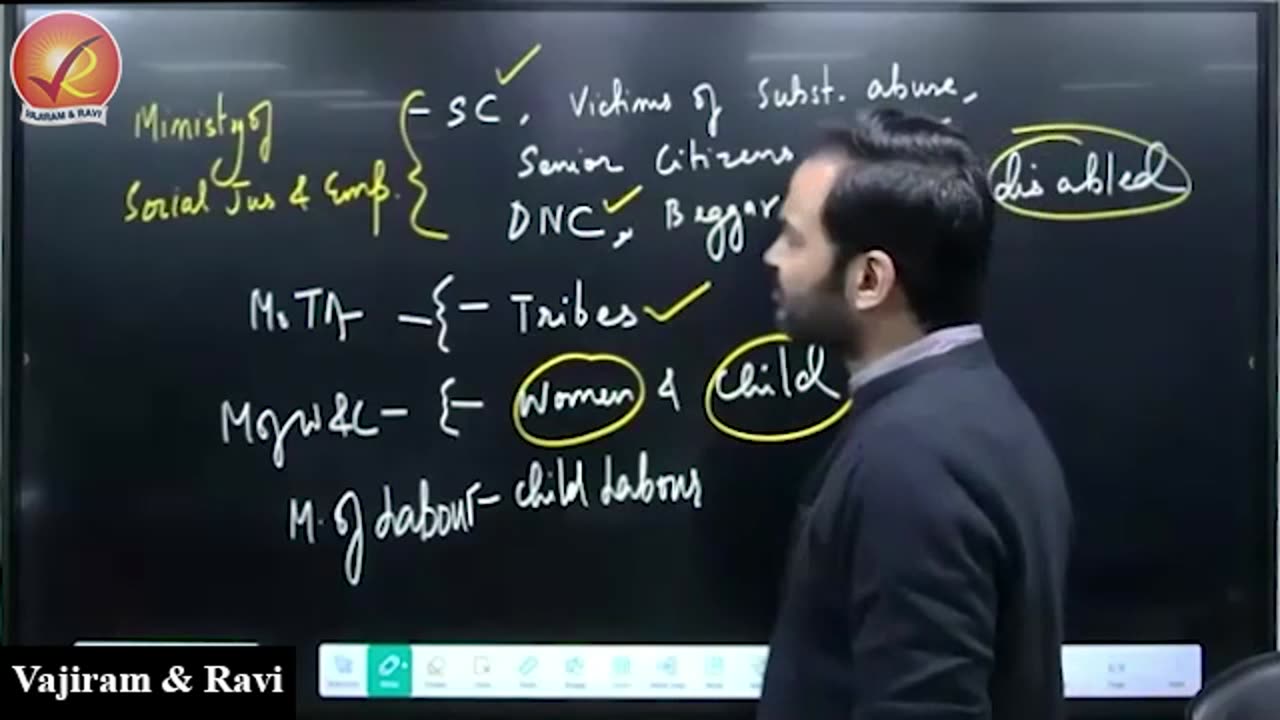 VAJIRAM & RAVI
Ministy of
Social Jus & Emp.
- SC, Victims of Subst. abuse,
Senior Citizens
disabled
DNC, Beggar
MoTA - { - Tribes
M of W & C - { - Women & Child
M. of Labour - Child Labour
Vajiram & Ravi